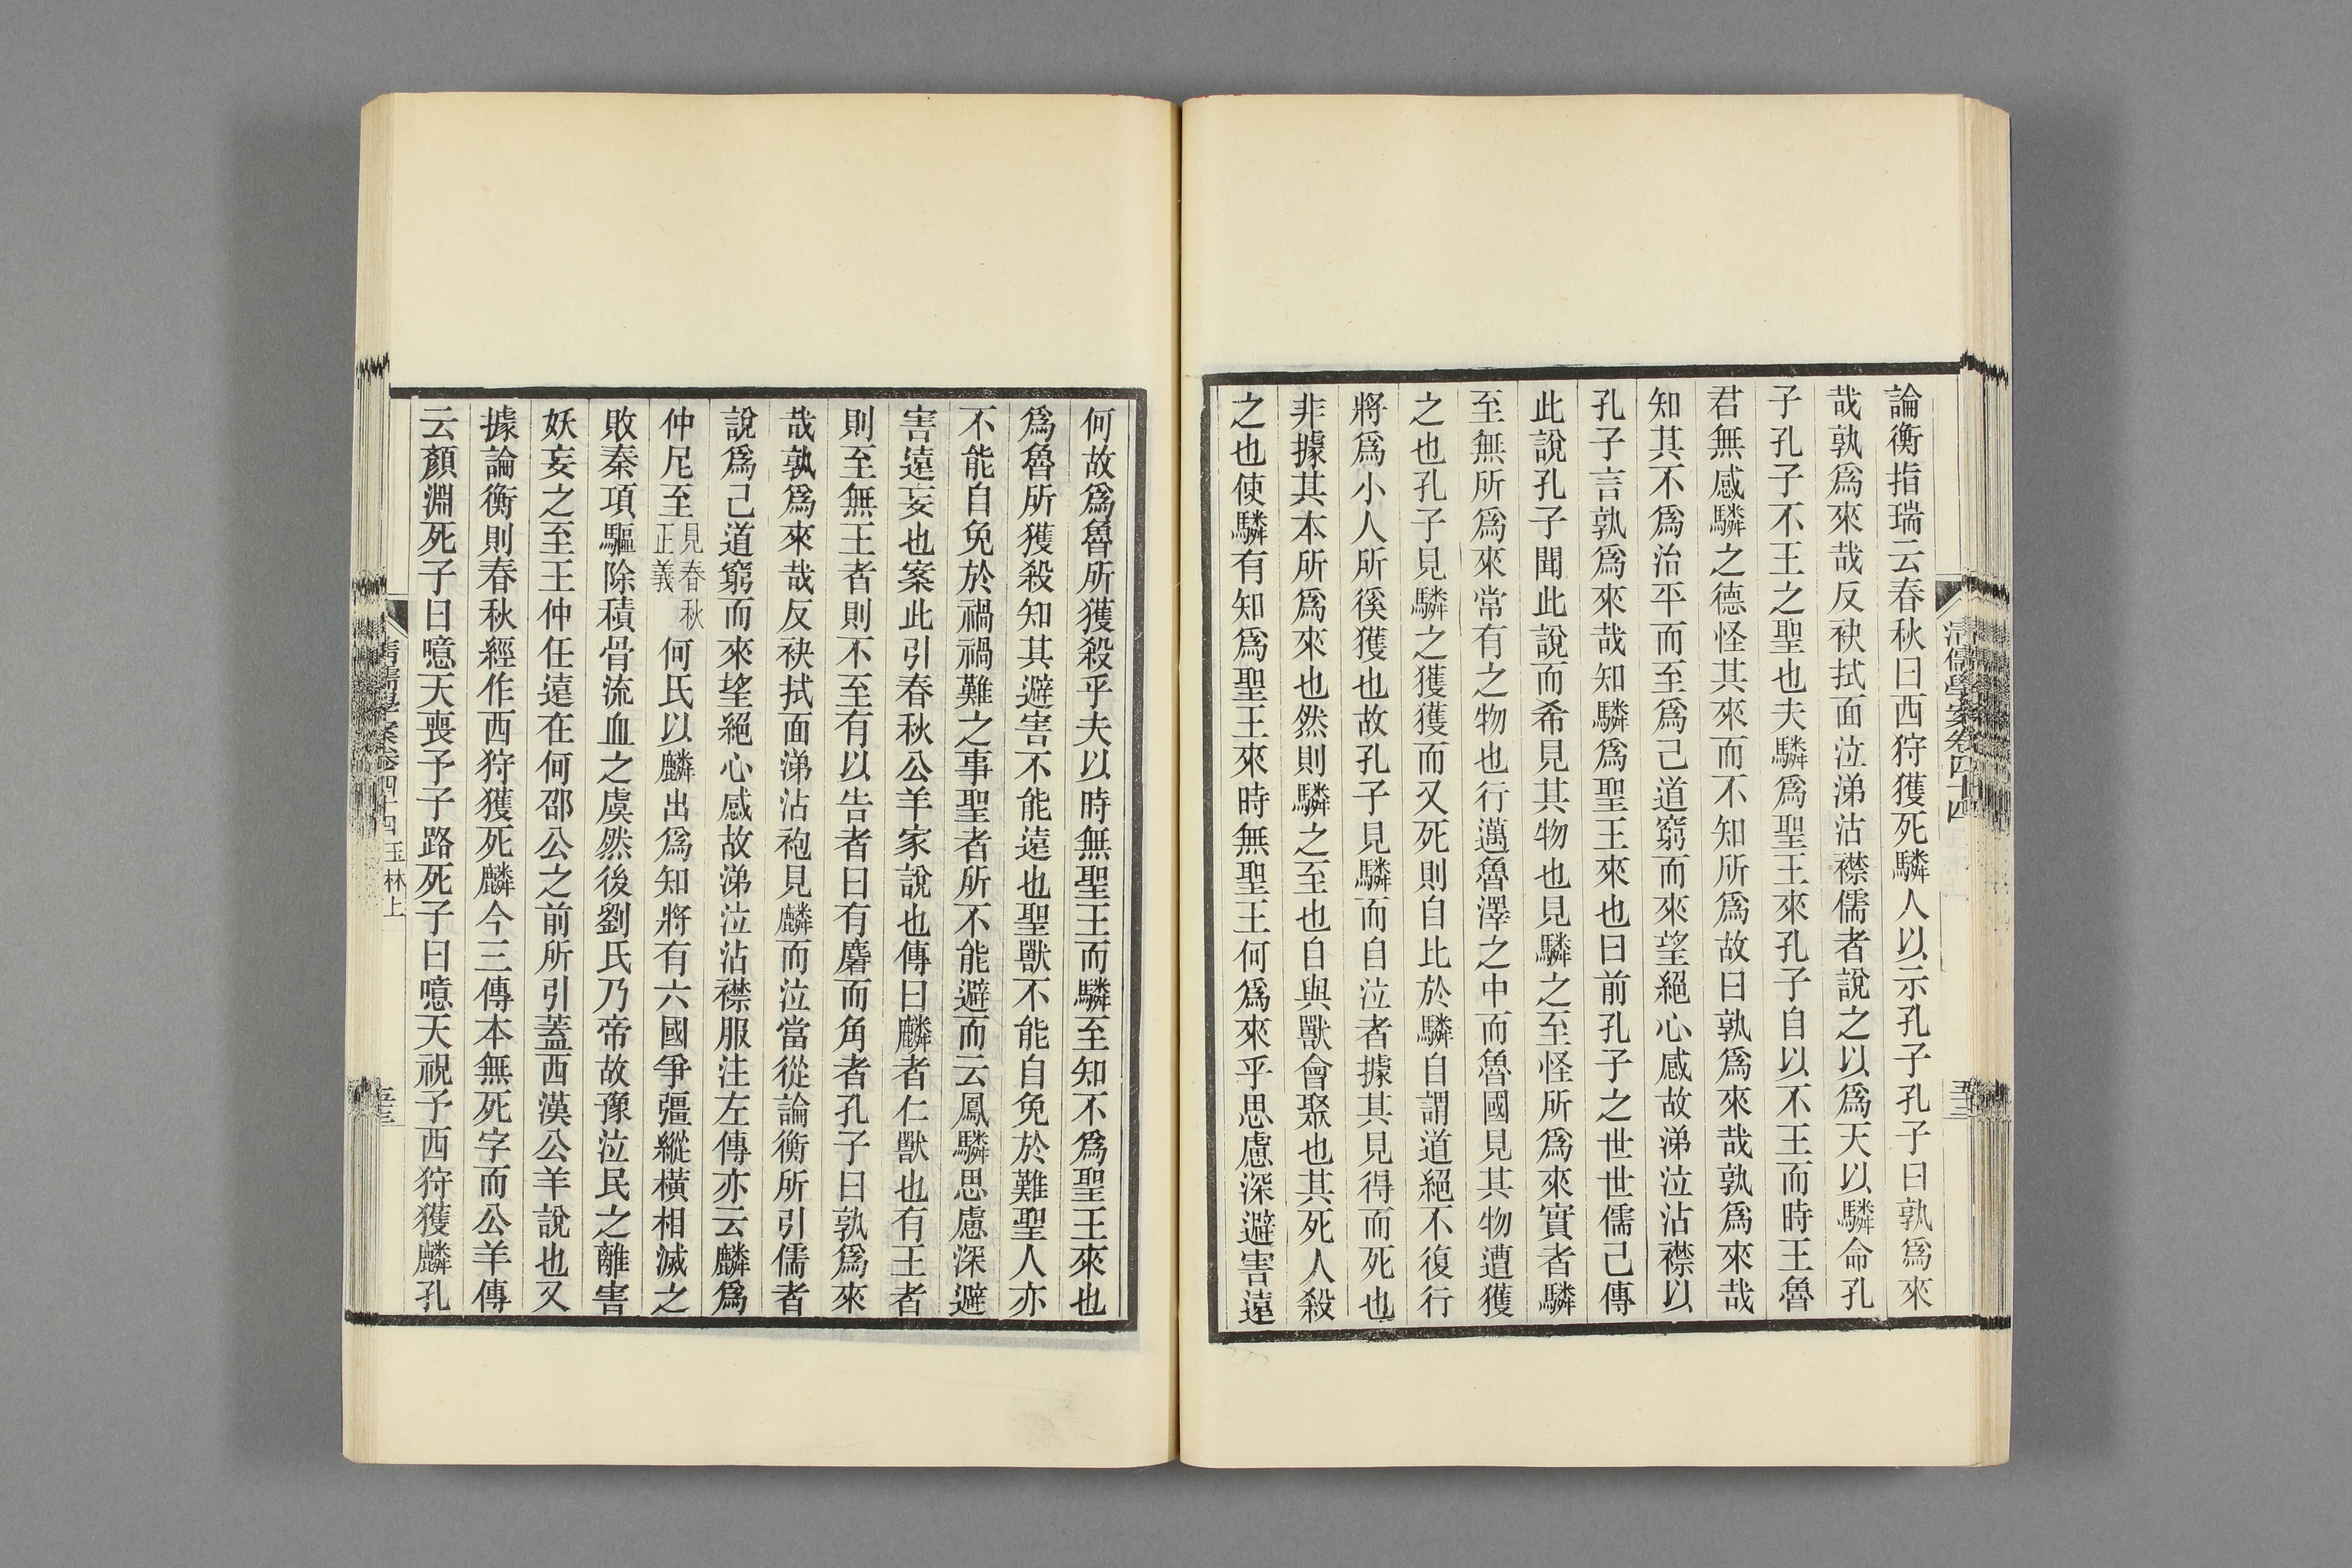 清儒學案卷四十四
論衡指瑞云春秋曰西狩獲死驎人以示孔子孔子曰孰爲來
哉孰爲來哉反袂拭面泣涕沾襟儒者說之以爲天以驎命孔
子孔子不王之聖也夫驎爲聖王來孔子自以不王而時王魯
君無感驎之德怪其來而不知所爲故曰孰爲來哉孰爲來哉
知其不爲治平而至爲己道窮而來望絕心感故涕泣沾襟以
孔子言孰爲來哉知驎爲聖王來也曰前孔子之世世儒已傳
此說孔子聞此說而希見其物也見驎之至怪所爲來實者驎
至無所爲來常有之物也行邁魯澤之中而魯國見其物遭獲
之也孔子見驎之獲獲而又死則自比於驎自謂道絕不復行
將爲小人所徯獲也故孔子見驎而自泣者據其見得而死也
非據其本所爲來也然則驎之至也自與獸會聚也其死人殺
之也使驎有知爲聖王來時無聖王何爲來乎思慮深避害遠
何故爲魯所獲殺乎夫以時無聖王而驎至知不爲聖王來也
爲魯所獲殺知其避害不能遠也聖獸不能自免於難聖人亦
不能自免於禍禍難之事聖者所不能避而云鳳驎思慮深避
害遠妄也案此引春秋公羊家說也傳曰麟者仁獸也有王者
則至無王者則不至有以告者曰有麏而角者孔子曰孰爲來
哉孰爲來哉反袂拭面涕沾袍見麟而泣當從論衡所引儒者
說爲己道窮而來望絕心感故涕泣沾襟服注左傳亦云麟爲
仲尼至見春秋正義何氏以麟出爲知將有六國爭彊縱橫相滅之
敗秦項驅除積骨流血之虞然後劉氏乃帝故豫泣民之離害
妖妄之至王仲任遠在何邵公之前所引蓋西漢公羊說也又
據論衡則春秋經作西狩獲死麟今三傳本無死字而公羊傳
云顏淵死子曰噫天喪予子路死子曰噫天祝予西狩獲麟孔
清儒學案卷四十四 玉林上